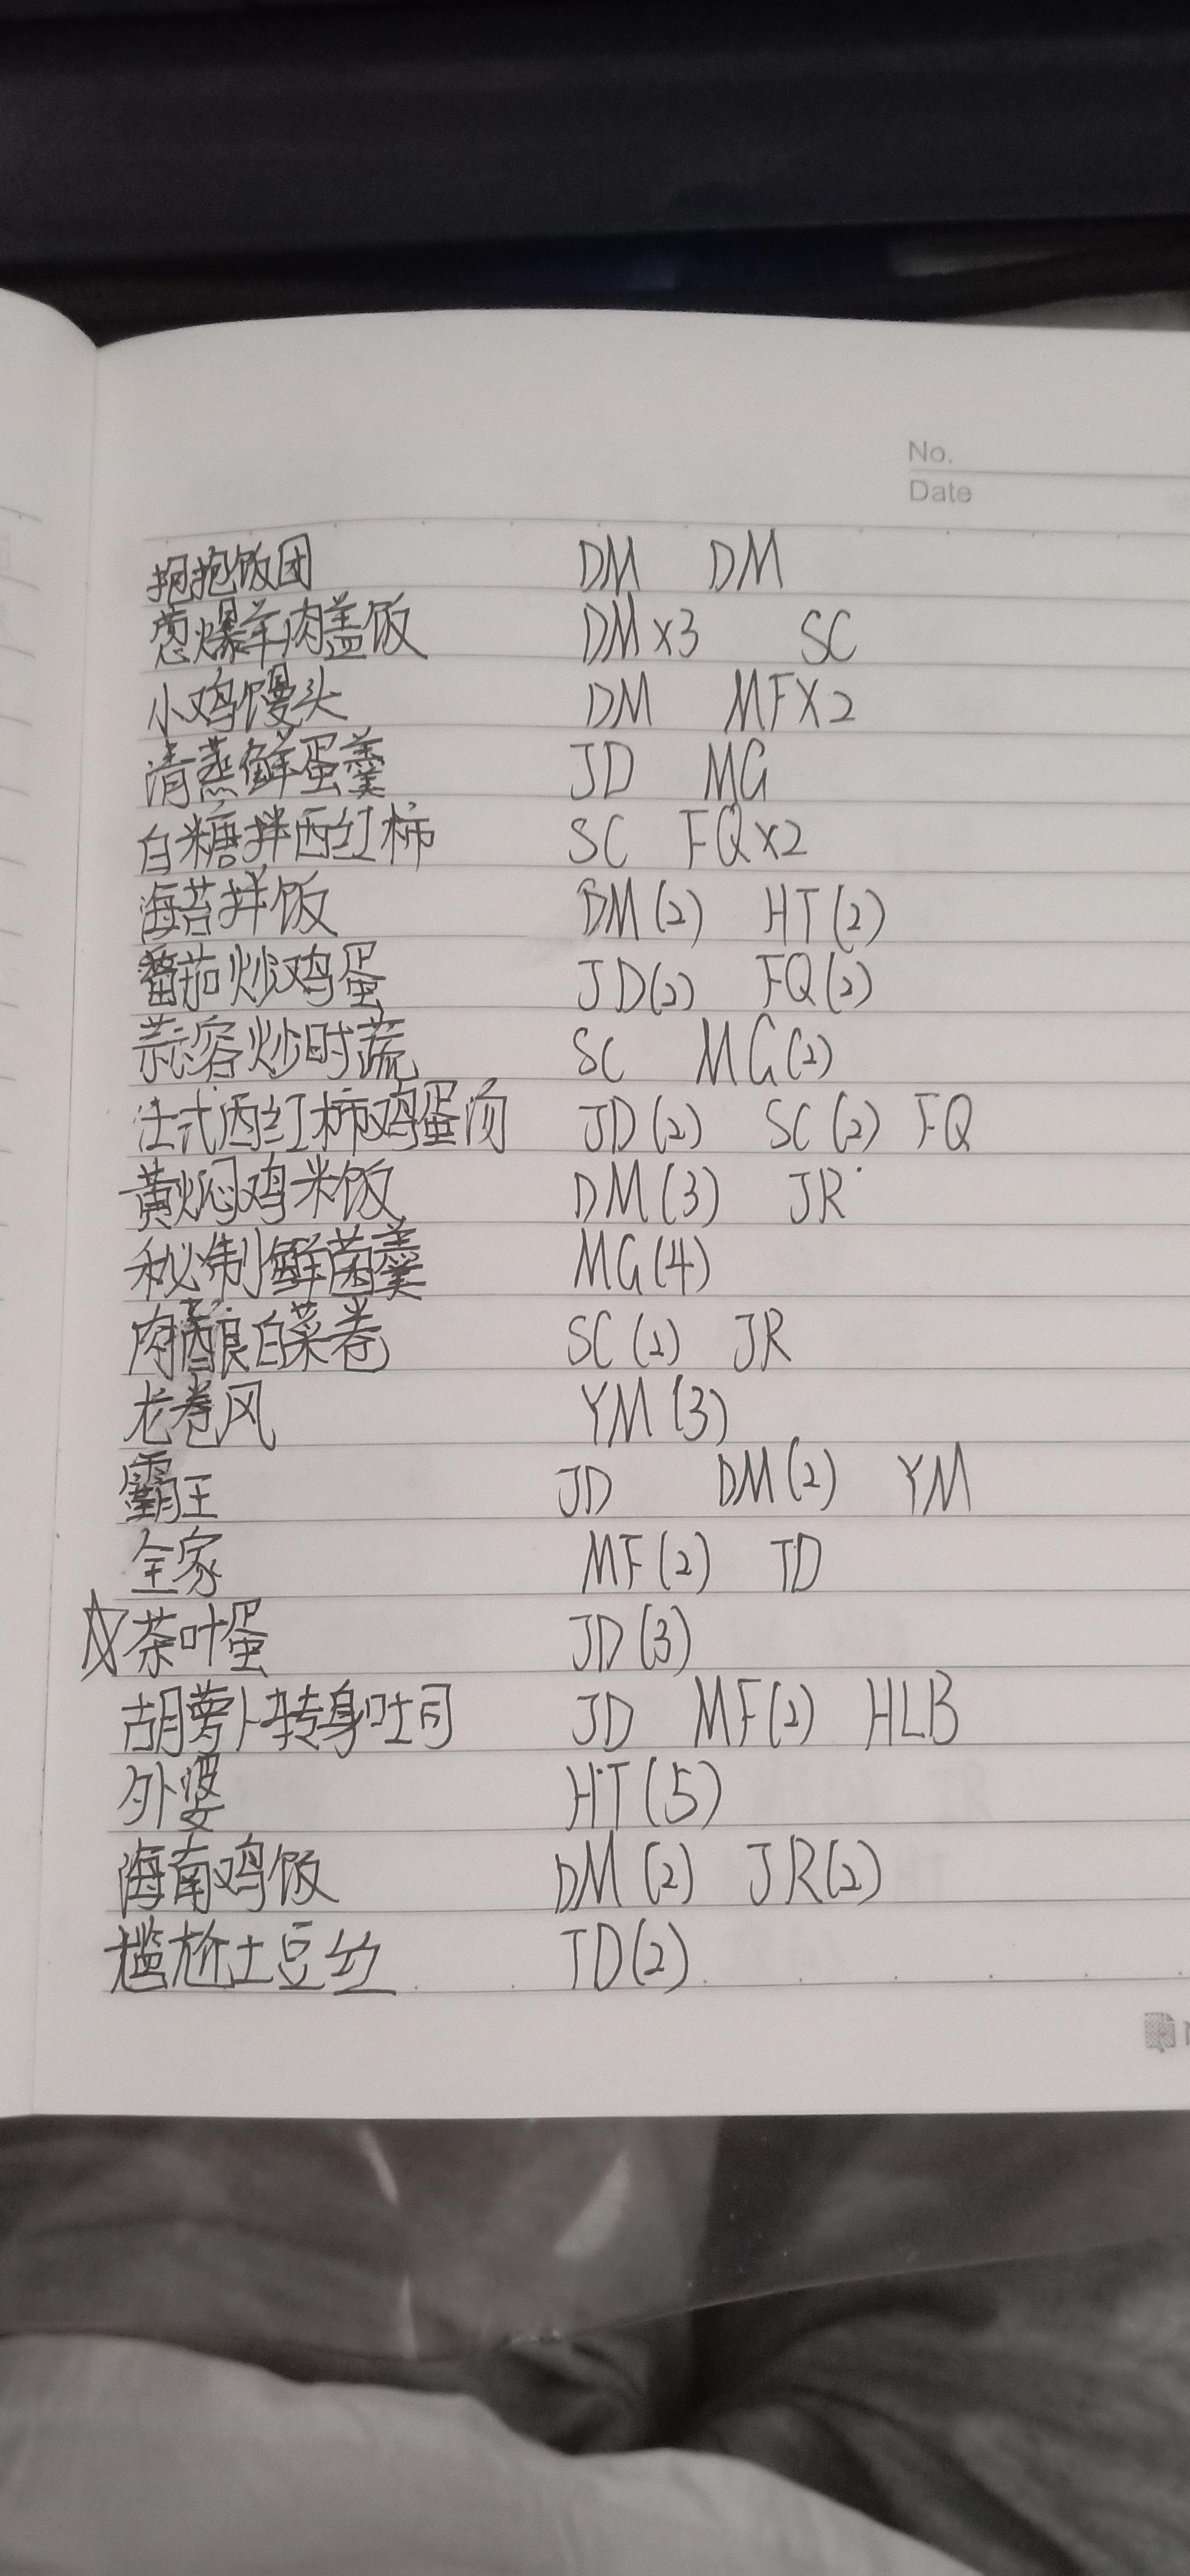 No.
Date
抱抱饭团 DM DM
葱爆羊肉盖饭 DM×3 SC
小鸡馒头 DM MF×2
清蒸鲜蛋羹 JD MG
白糖拌西红柿 SC FQ×2
海苔拌饭 DM(2) HT(2)
番茄炒鸡蛋 JD(2) FQ(2)
蒜容炒时蔬 SC MG(2)
法式西红柿鸡蛋汤 JD(2) SC(2) FQ
黄焖鸡米饭 DM(3) JR
秘制鲜菌羹 MG(4)
肉酿白菜卷 SC(2) JR
龙卷风 YM(3)
霸王 JD DM(2) YM
全家 MF(2) TD
☆茶叶蛋 JD(3)
胡萝卜转身吐司 JD MF(2) HLB
外婆 HT(5)
海南鸡饭 DM(2) JR(2)
尴尬土豆丝 TD(2)